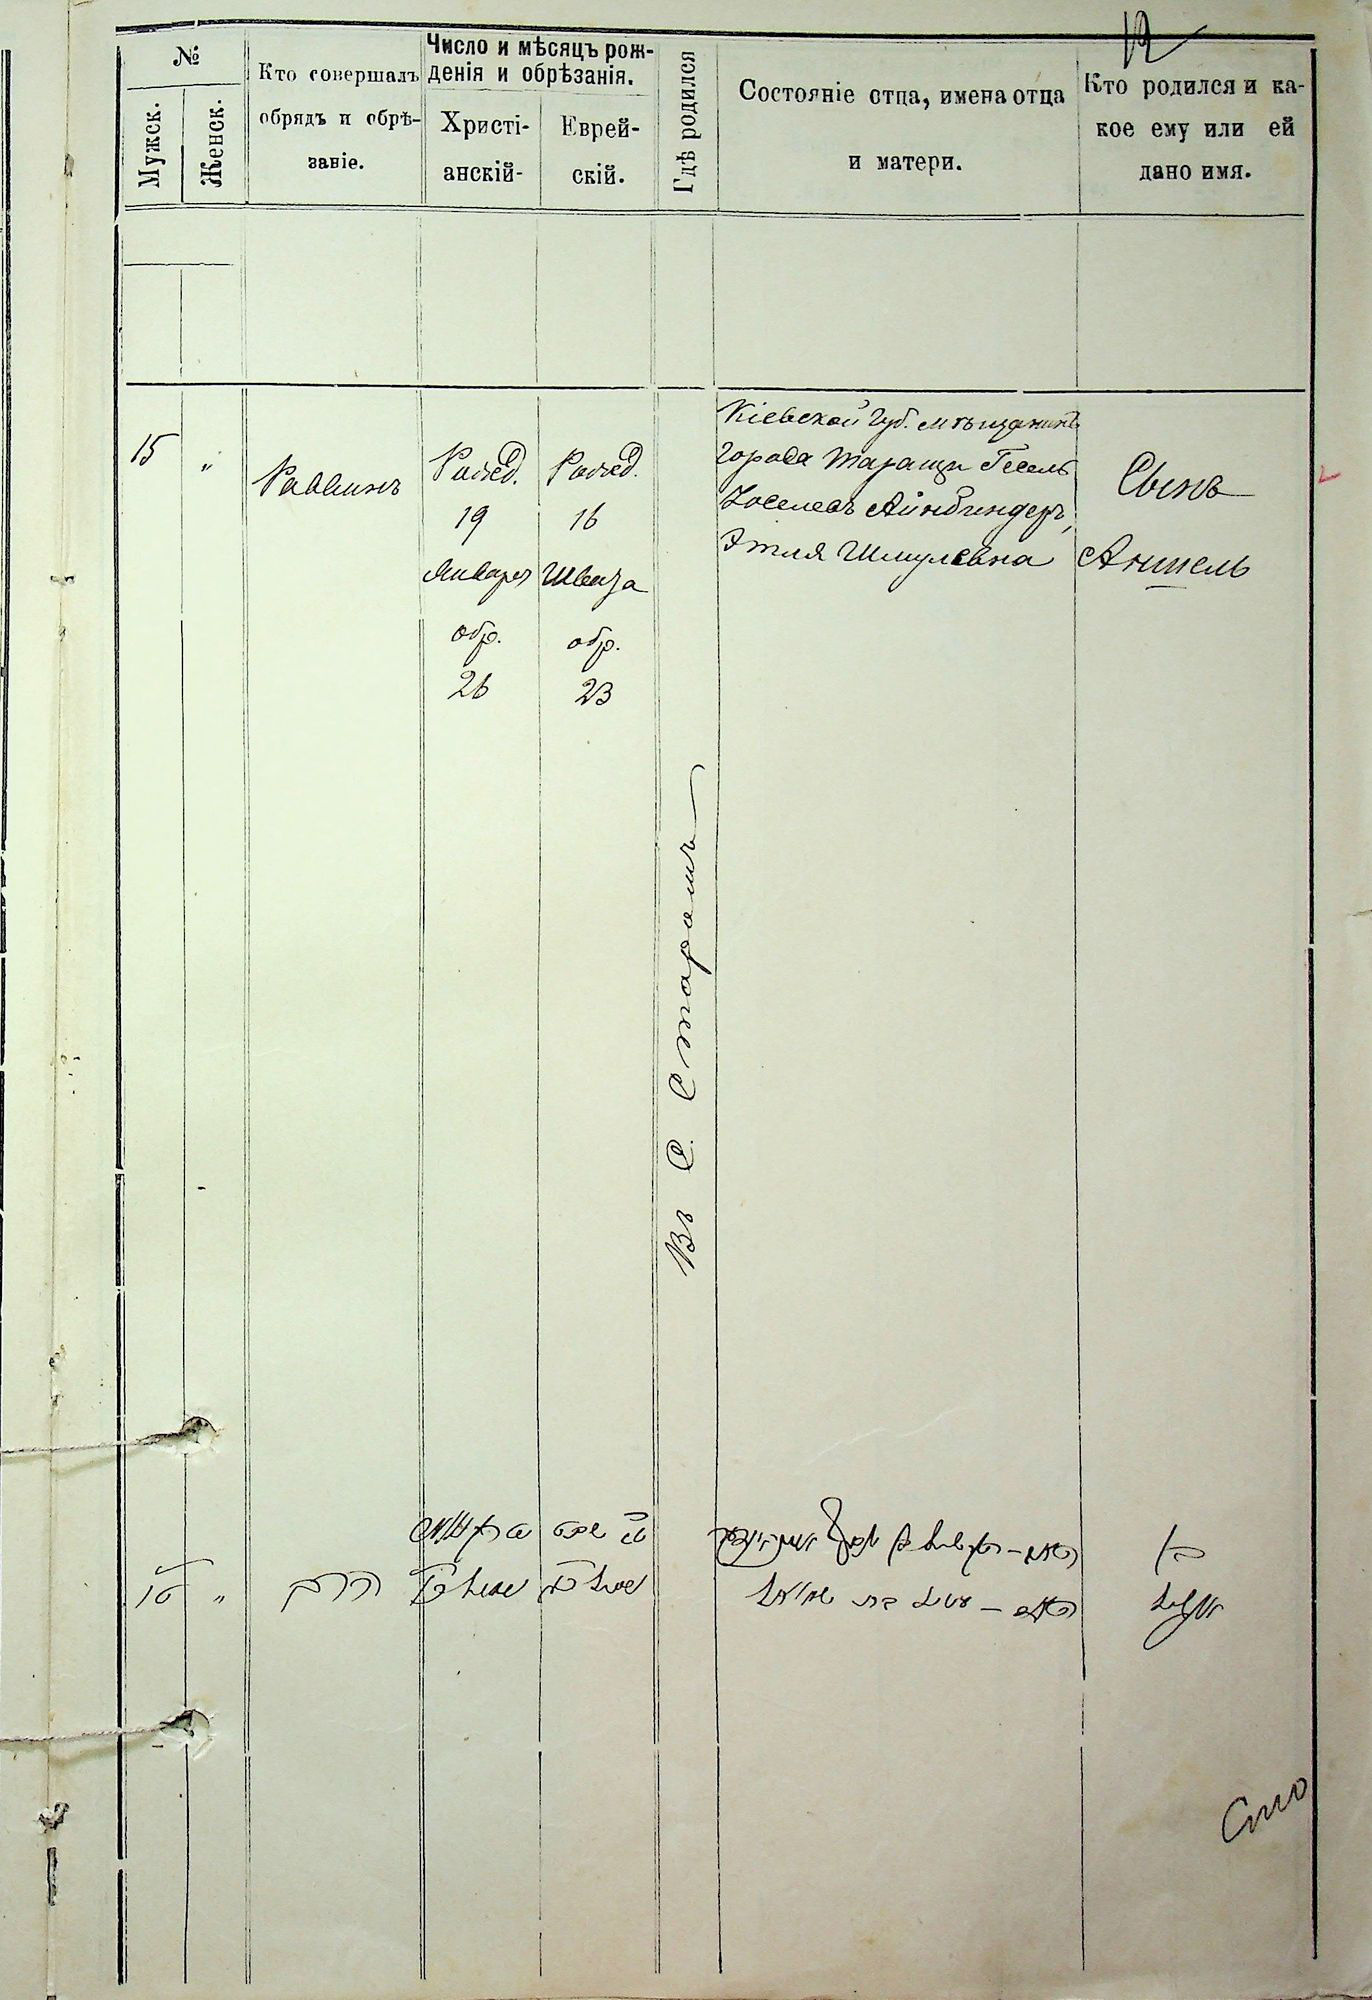 12
№
Мужск.
Женск.
Кто совершалъ
обрядъ и обрѣ-
заніе.
Число и мѣсяцъ рож-
денія и обрѣзанія.
Христі-
анскій-
Еврей-
скій.
Гдѣ родился
Состояніе отца, имена отца
и матери.
Кто родился и ка-
кое ему или ей
дано имя.
15
"
Раввинъ
Рожд.
19
Января
обр.
26
Рожд.
16
Швата
обр.
23
Въ С. Старомъ
Кіевской губ. мѣщанинъ
города Таращи Гесель
Іоселевъ Айнбиндеръ,
Этля Шмулевна
Сынъ
Аншель
15
"
הרב
בן
אנשיל
Сто